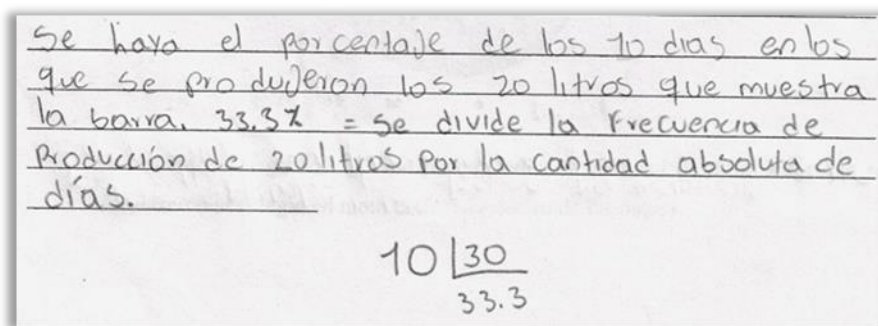 Se haya el porcentaje de los 10 dias en los
que se produjeron los 20 litros que muestra
la barra. 33.3% = se divide la frecuencia de
Producción de 20 litros por la cantidad absoluta de
días.
10 |30
33.3